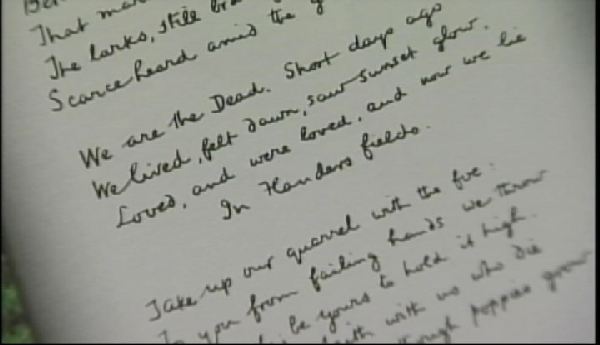 That mar
The larks, still bra
Scarce heard amid the g
We are the Dead. Short days ago
We lived, felt dawn, saw sunset glow,
Loved, and were loved, and now we lie
In Flanders fields.
Take up our quarrel with the foe:
To you from failing hands we throw
be yours to hold it high.
faith with us who die
though poppies grow